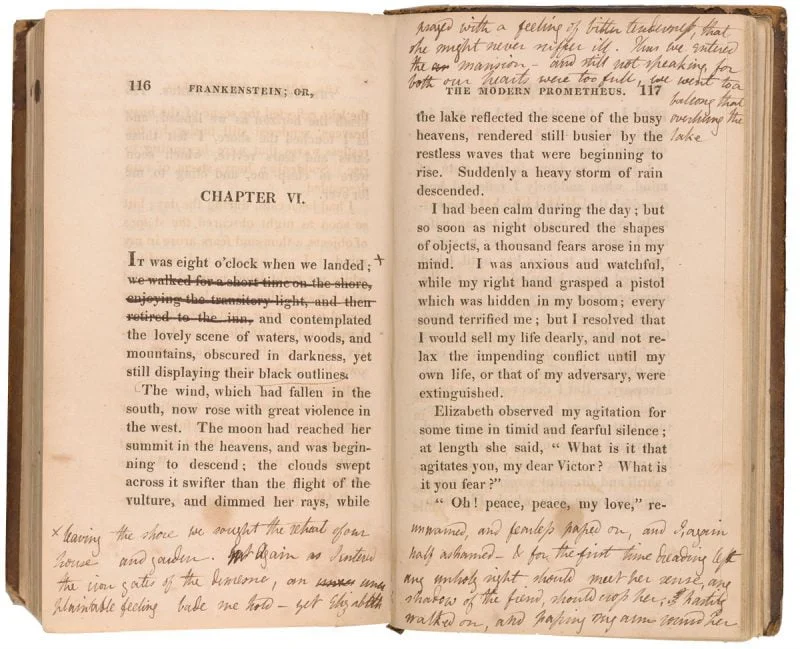 116 FRANKENSTEIN; OR,
CHAPTER VI.
IT was eight o'clock when we landed; ×
we walked for a short time on the shore,
enjoying the transitory light, and then
retired to the inn, and contemplated
the lovely scene of waters, woods, and
mountains, obscured in darkness, yet
still displaying their black outlines.
The wind, which had fallen in the
south, now rose with great violence in
the west. The moon had reached her
summit in the heavens, and was begin-
ning to descend; the clouds swept
across it swifter than the flight of the
vulture, and dimmed her rays, while
× leaving the shore we sought the retreat of our
house and garden. again as I entered
the iron gates of the an
plainable feeling bade me hold – yet Elizabeth
prayed with a feeling of bitter tenderness, that
she might never suffer ill. Thus we entered
the mansion – and still not speaking, for
both our hearts were too full, we went to a
balcony that
overhung the
lake
THE MODERN PROMETHEUS. 117
the lake reflected the scene of the busy
heavens, rendered still busier by the
restless waves that were beginning to
rise. Suddenly a heavy storm of rain
descended.
I had been calm during the day; but
so soon as night obscured the shapes
of objects, a thousand fears arose in my
mind. I was anxious and watchful,
while my right hand grasped a pistol
which was hidden in my bosom; every
sound terrified me; but I resolved that
I would sell my life dearly, and not re-
lax the impending conflict until my
own life, or that of my adversary, were
extinguished.
Elizabeth observed my agitation for
some time in timid and fearful silence;
at length she said, " What is it that
agitates you, my dear Victor? What is
it you fear?"
" Oh! peace, peace, my love," re-
unwarned, and fearless on, and I, again
half ashamed – & for the first time dreading lest
any unholy should meet her sense, any
shadow of the fiend, should cross her; I hastily
walked on, and passing my arm round her